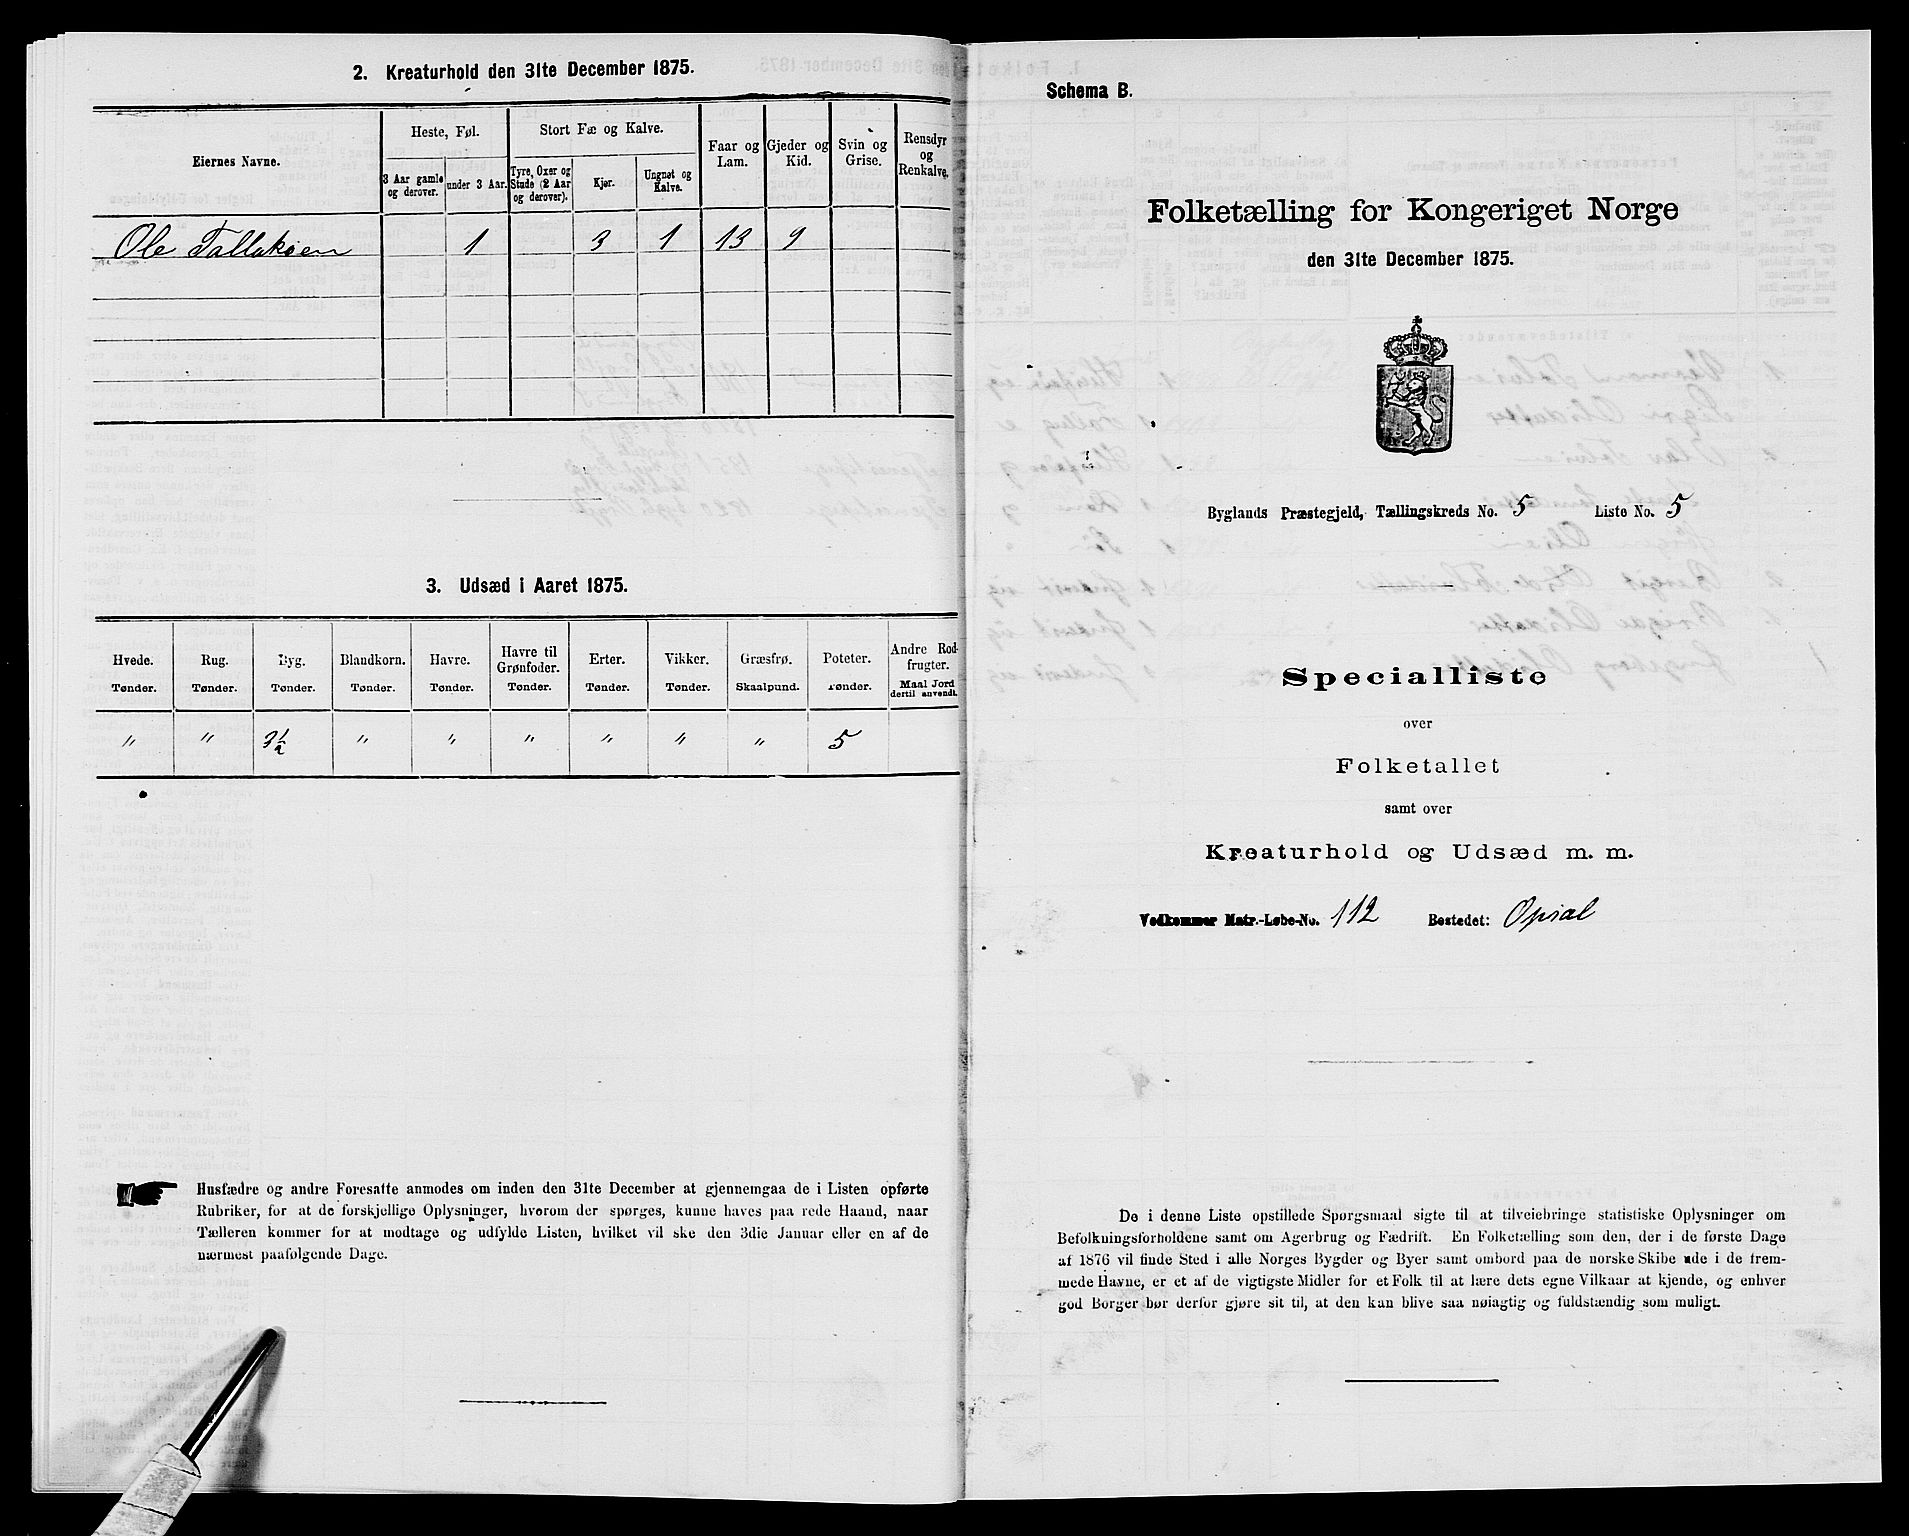 2. Kreaturhold den 31te December 1875.
Eiernes Navne.
Heste, Føl.
3 Aar gamle og derover.
under 3 Aar.
Stort Fæ og Kalve.
Tyre, Oxer og Stude (2 Aar og derover).
Kjør.
Ungnøt og Kalve.
Faar og Lam.
Gjeder og Kid.
Svin og Grise.
Rensdyr og Renkalve.
Ole Tallaksen 1 3 1 13 9
3. Udsæd i Aaret 1875.
Hvede. Rug. Byg. Blandkorn. Havre. Havre til Grønfoder. Erter. Vikker. Græsfrø. Poteter. Andre Rodfrugter.
Tønder. Tønder. Tønder. Tønder. Tønder. Tønder. Tønder. Tønder. Skaalpund. Tønder. Maal Jord dertil anvendt.
" " 3½ " " " " " " 5
Husfædre og andre Foresatte anmodes om inden den 31te December at gjennemgaa de i Listen opførte
Rubriker, for at de forskjellige Oplysninger, hvorom der spørges, kunne haves paa rede Haand, naar
Tælleren kommer for at modtage og udfylde Listen, hvilket vil ske den 3die Januar eller en af de
nærmest paafølgende Dage.
Schema B.
Folketælling for Kongeriget Norge
den 31te December 1875.
Byglands Præstegjeld, Tællingskreds No. 5 Liste No. 5
Specialliste
over
Folketallet
samt over
Kreaturhold og Udsæd m. m.
Vedkommer Matr.-Løbe-No. 112 Bostedet: Opsal
De i denne Liste opstillede Spørgsmaal sigte til at tilveiebringe statistiske Oplysninger om
Befolkningsforholdene samt om Agerbrug og Fædrift. En Folketælling som den, der i de første Dage
af 1876 vil finde Sted i alle Norges Bygder og Byer samt ombord paa de norske Skibe ude i de frem-
mede Havne, er et af de vigtigste Midler for et Folk til at lære dets egne Vilkaar at kjende, og enhver
god Borger bør derfor gjøre sit til, at den kan blive saa nøiagtig og fuldstændig som muligt.